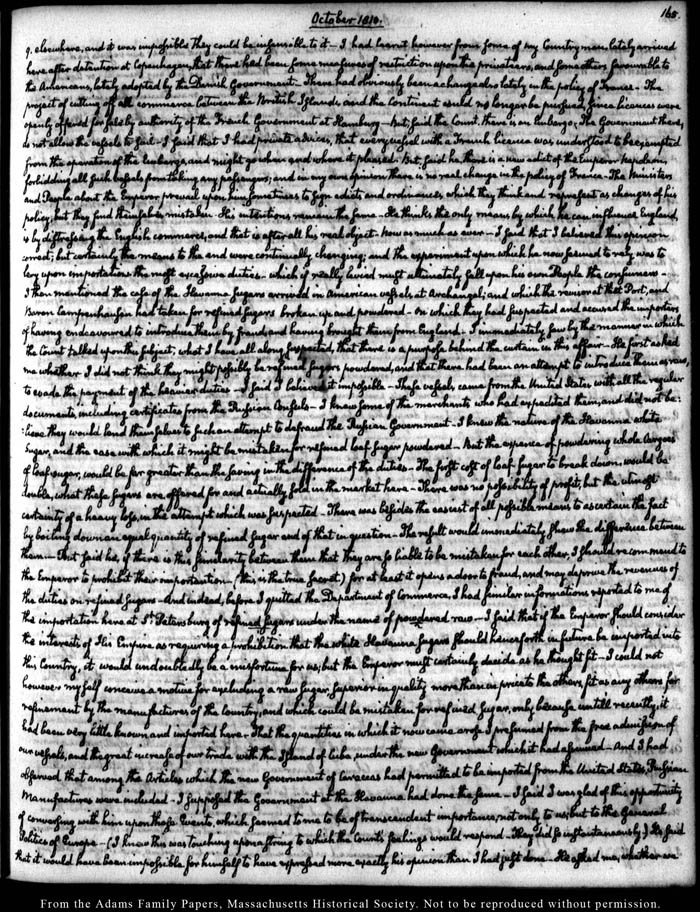 October 1810.
165.
9. elsewhere, and it was impossible They could be insensible to it — I had learnt however from some of my Countrymen lately arrived
here after detention at Copenhagen, that there had been some measures of restriction upon the privateers, and some others favourable to
the Americans, lately adopted by the Danish Government — There had obviously been a change also lately in the policy of France — The
project of cutting off all commerce between the British Islands, and the Continent could no longer be pursued, since licences were
openly offered for sale by authority of the French Government at Hamburg — But said the Count, there is an Embargo; The Government there,
do not allow the vessels to sail — I said that I had private advices, that every vessel with a French licence was understood to be exempted
from the operation of the Embargo, and might go when and where it pleased. But, said he, there is a new edict of the Emperor Napoleon,
forbidding all such vessels from taking any passengers; and in my own opinion there is no real change in the policy of France — The Ministers
and People about the Emperor prevail upon him sometimes to sign edicts and ordinances, which they think and represent as changes of his
policy; but they find themselves mistaken — His intentions remain the same — He thinks the only means by which he can influence England,
is by distressing the English commerce, and that is after all his real object — now as much as ever — I said that I believed this opinion
correct; but certainly the means to the end were continually changing; and the experiment upon which he now seemed to rely, was to
levy upon importations the most excessive duties — which if really levied must ultimately fall upon his own People the consumers —
I then mentioned the case of the Havanna Sugars arrived in American vessels at Archangel; and which the censor at that Port, and
Baron Campenhausen had taken for refined Sugars broken up and powdered — On which they had suspected and accused the importers
of having endeavoured to introduce them by fraud, and having brought them from England — I immediately saw by the manner in which
the Count talked upon the subject, what I have all along suspected, that there is a purpose behind the curtain in this affair — He first asked
me whether I did not think they might possibly be refined Sugars powdered, and that there had been an attempt to introduce them as raw,
to evade the payment of the heavier duties — I said I believed it impossible — These vessels came from the United States with all the regular
documents, including certificates from the Russian Consuls — I knew some of the merchants who had expedited them, and did not be-
:lieve they would lend themselves to such an attempt to defraud the Russian Government — I knew the nature of the Havanna white
Sugar, and the ease with which it might be mistaken for refined loaf sugar powdered — But the expence of powdering whole Cargoes
of loaf-sugar, would be far greater than the saving in the difference of the duties — The first cost of loaf Sugar to break down, would be
double, what these Sugars are offered for and actually sold in the market here — There was no possibility of profit, but the utmost
certainty of a heavy loss, in the attempt which was suspected — There was besides the easiest of all possible means to ascertain the fact
by boiling down an equal quantity of refined Sugar and of that in question — The result would immediately shew the difference between
them — But said he, if there is this similarity between them that they are so liable to be mistaken for each other, I should recommend to
the Emperor to prohibit their importation — (this is the true secret) for at least it opens a door to fraud, and may deprive the revenues of
the duties on refined Sugars — And indeed, before I quitted the Department of Commerce, I had similar informations reported to me of
the importation here at St. Petersburg of refined Sugars under the name of powdered raw — I said that if the Emperor should consider
the interests of His Empire as requiring a prohibition that the white Havanna Sugars should henceforth in future be imported into
this Country, it would undoubtedly be a misfortune for us; but the Emperor must certainly decide as he thought fit — I could not
however myself conceive a motive for excluding a raw Sugar, superior in quality more than in price to the others, fit as any others for
refinement by the manufactures of the Country, and which could be mistaken for refined Sugar, only because until recently, it
had been very little known and imported here — That the quantities in which it now came arose I presumed from the free admission of
our vessels, and the great increase of our trade with the Island of Cuba, under the new Government which it had assumed — And I had
observed, that among the Articles which the new Government of Caraccas had permitted to be imported from the United States, Russian
Manufactures were included — I supposed the Government at the Havanna had done the same — I said I was glad of this opportunity
of conversing with him upon those Events, which seemed to me to be of transcendent importance, not only to us, but to the General
Politics of Europe — (I knew this was touching upon a string to which the Count's feelings would respond — They did so instantaneously) He said
that it would have been impossible for himself to have expressed more exactly his opinion than I had just done — He asked me, whether we
From the Adams Family Papers, Massachusetts Historical Society. Not to be reproduced without permission.